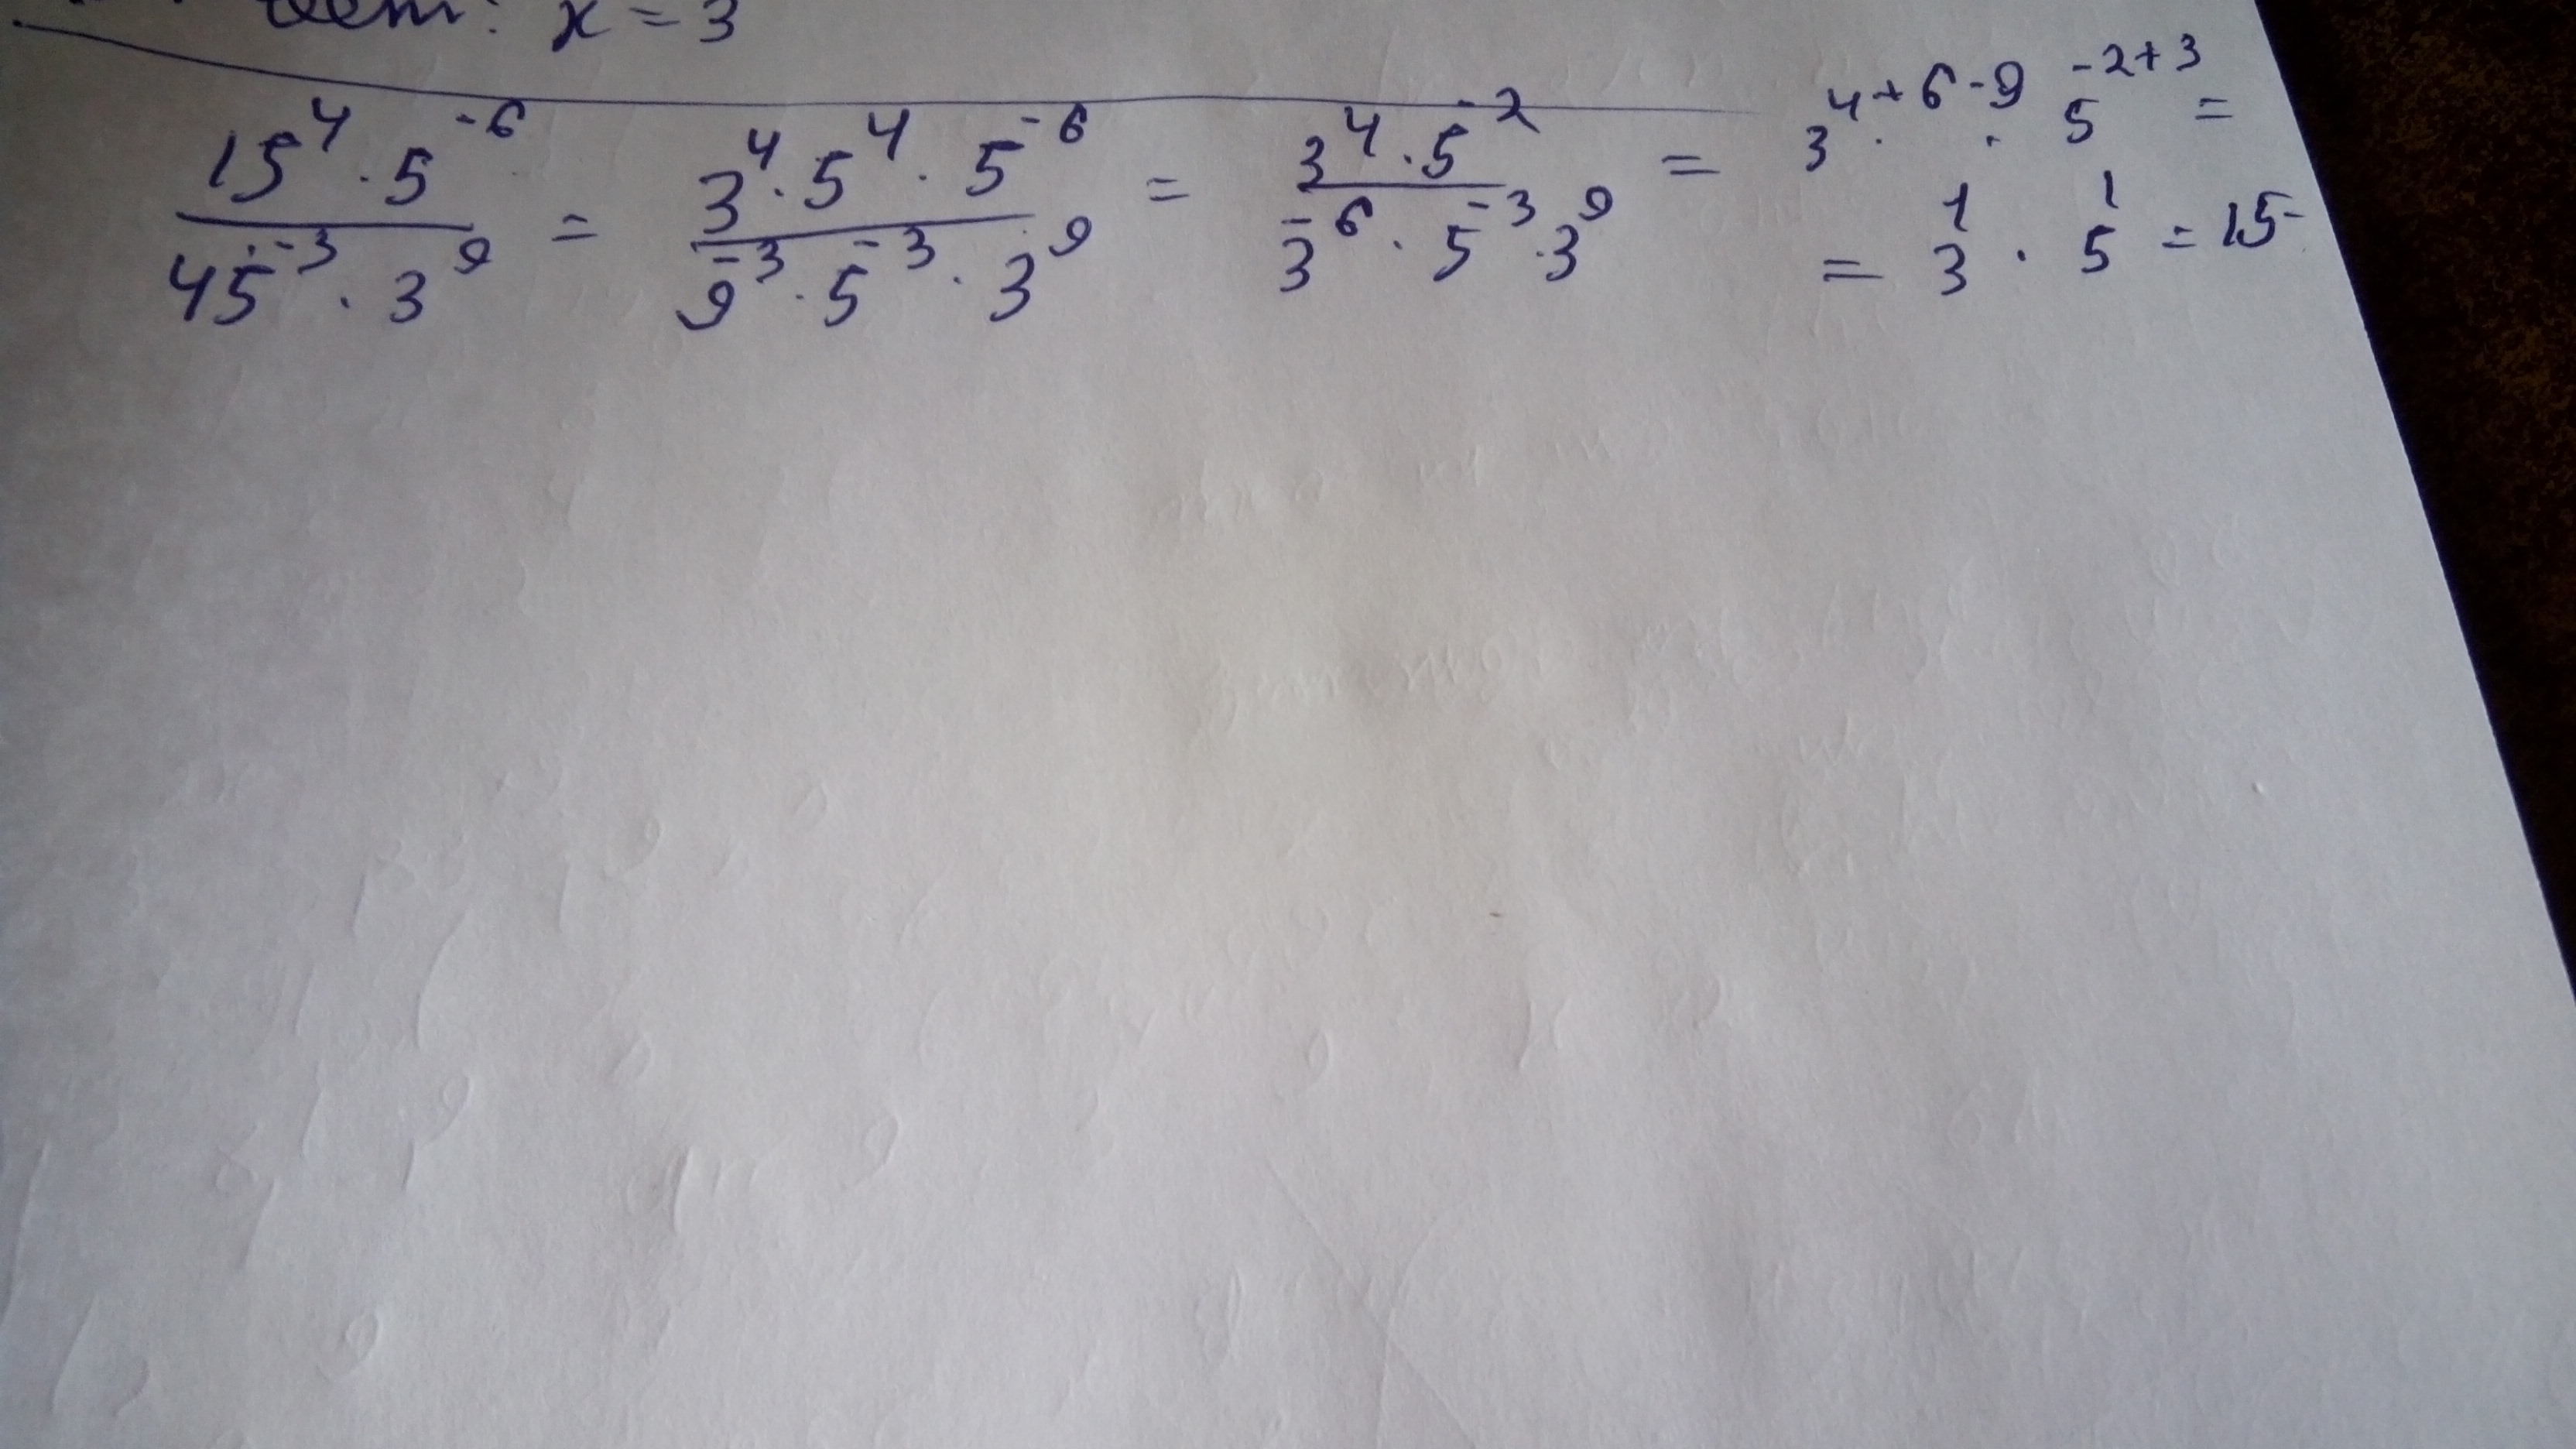 x = 3
15⁴ · 5⁻⁶ / 45⁻³ · 3⁹ = 3⁴ · 5⁴ · 5⁻⁶ / 9⁻³ · 5⁻³ · 3⁹ = 3⁴ · 5⁻² / 3⁻⁶ · 5⁻³ · 3⁹ = 3⁴⁺⁶⁻⁹ · 5⁻²⁺³ =
= 3¹ · 5¹ = 15